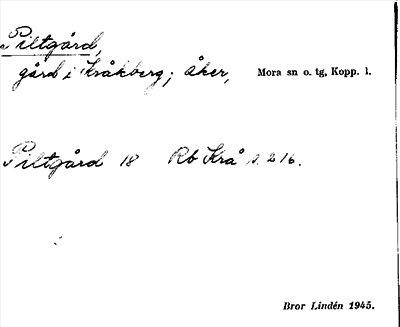 Piltgård,
gård i Kråkberg; åker, Mora sn o. tg, Kopp. l.
Piltgård 18 Rb Krå s. 216.
Bror Lindén 1945.